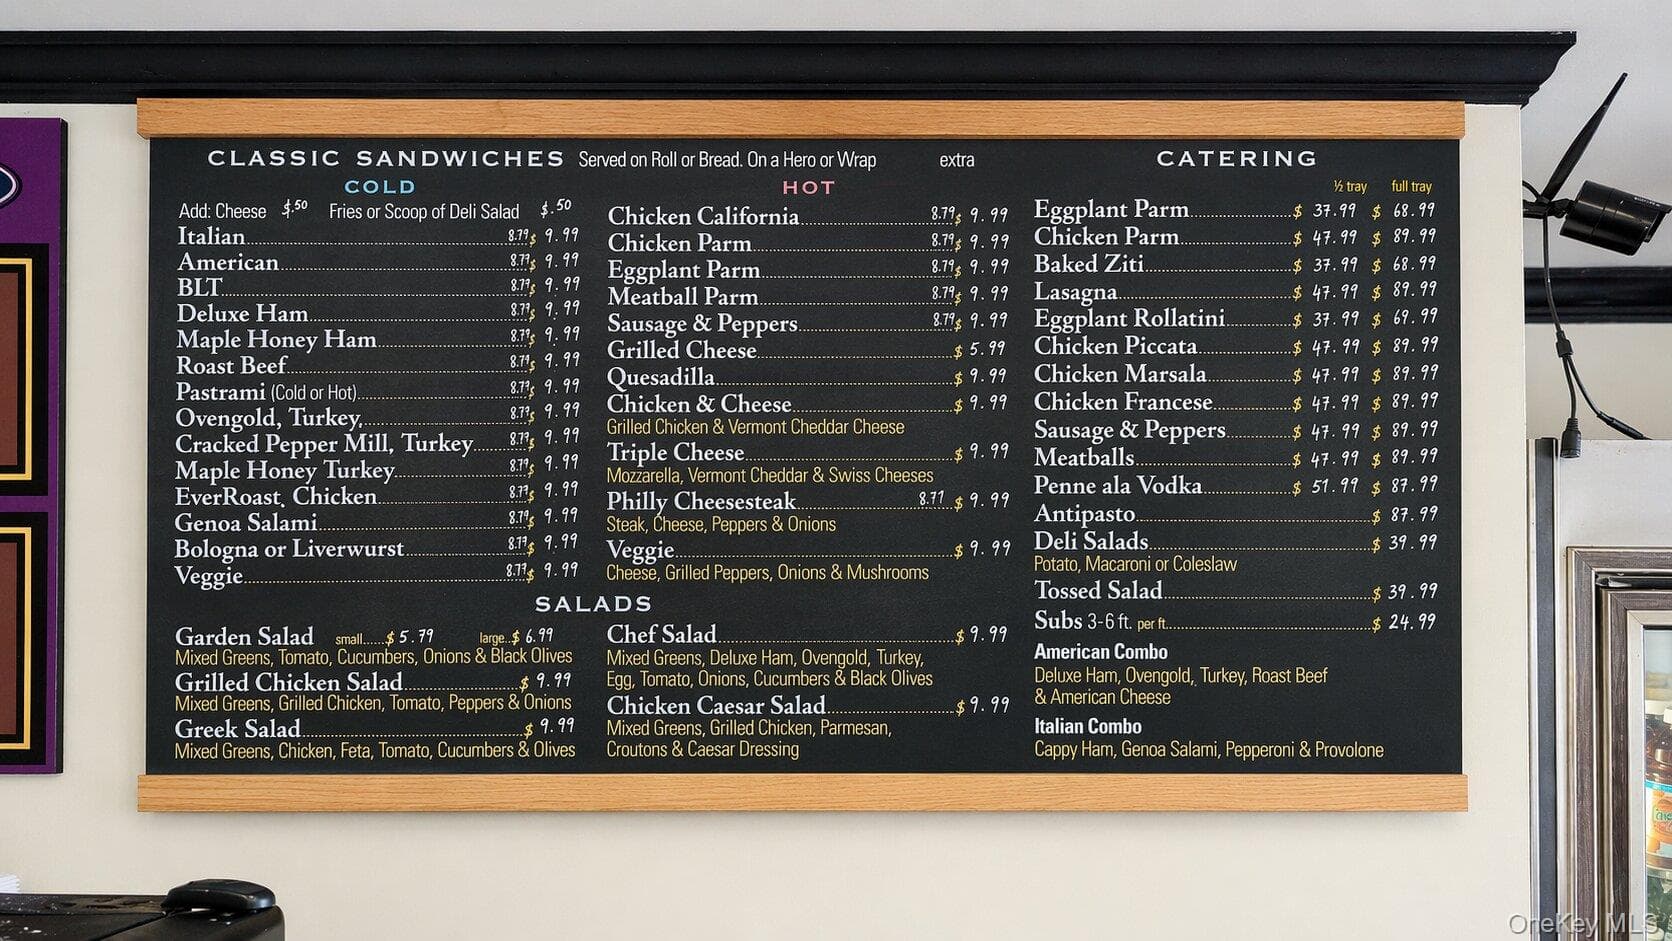 CLASSIC SANDWICHES Served on Roll or Bread. On a Hero or Wrap extra
COLD
Add: Cheese $.50 Fries or Scoop of Deli Salad $.50
Italian 8.79 $ 9.99
American 8.79 $ 9.99
BLT 8.79 $ 9.99
Deluxe Ham 8.79 $ 9.99
Maple Honey Ham 8.79 $ 9.99
Roast Beef 8.79 $ 9.99
Pastrami (Cold or Hot) 8.79 $ 9.99
Ovengold, Turkey 8.79 $ 9.99
Cracked Pepper Mill, Turkey 8.79 $ 9.99
Maple Honey Turkey 8.79 $ 9.99
EverRoast, Chicken 8.79 $ 9.99
Genoa Salami 8.79 $ 9.99
Bologna or Liverwurst 8.79 $ 9.99
Veggie 8.79 $ 9.99
HOT
Chicken California 8.79 $ 9.99
Chicken Parm 8.79 $ 9.99
Eggplant Parm 8.79 $ 9.99
Meatball Parm 8.79 $ 9.99
Sausage & Peppers 8.79 $ 9.99
Grilled Cheese $ 5.99
Quesadilla $ 9.99
Chicken & Cheese $ 9.99
Grilled Chicken & Vermont Cheddar Cheese
Triple Cheese $ 9.99
Mozzarella, Vermont Cheddar & Swiss Cheeses
Philly Cheesesteak $ 9.99
Steak, Cheese, Peppers & Onions
Veggie $ 9.99
Cheese, Grilled Peppers, Onions & Mushrooms
SALADS
Garden Salad small $ 5.79 large $ 6.99
Mixed Greens, Tomato, Cucumbers, Onions & Black Olives
Grilled Chicken Salad $ 9.99
Mixed Greens, Grilled Chicken, Tomato, Peppers & Onions
Greek Salad $ 9.99
Mixed Greens, Chicken, Feta, Tomato, Cucumbers & Olives
Chef Salad $ 9.99
Mixed Greens, Deluxe Ham, Ovengold, Turkey,
Egg, Tomato, Onions, Cucumbers & Black Olives
Chicken Caesar Salad $ 9.99
Mixed Greens, Grilled Chicken, Parmesan,
Croutons & Caesar Dressing
CATERING
½ tray full tray
Eggplant Parm $ 37.99 $ 68.99
Chicken Parm $ 47.99 $ 89.99
Baked Ziti $ 37.99 $ 68.99
Lasagna $ 47.99 $ 89.99
Eggplant Rollatini $ 37.99 $ 69.99
Chicken Piccata $ 47.99 $ 89.99
Chicken Marsala $ 47.99 $ 89.99
Chicken Francese $ 47.99 $ 89.99
Sausage & Peppers $ 47.99 $ 89.99
Meatballs $ 47.99 $ 89.99
Penne ala Vodka $ 51.99 $ 87.99
Antipasto $ 87.99
Deli Salads $ 39.99
Potato, Macaroni or Coleslaw
Tossed Salad $ 39.99
Subs 3-6 ft. per ft. $ 24.99
American Combo
Deluxe Ham, Ovengold, Turkey, Roast Beef
& American Cheese
Italian Combo
Cappy Ham, Genoa Salami, Pepperoni & Provolone
OneKey MLS